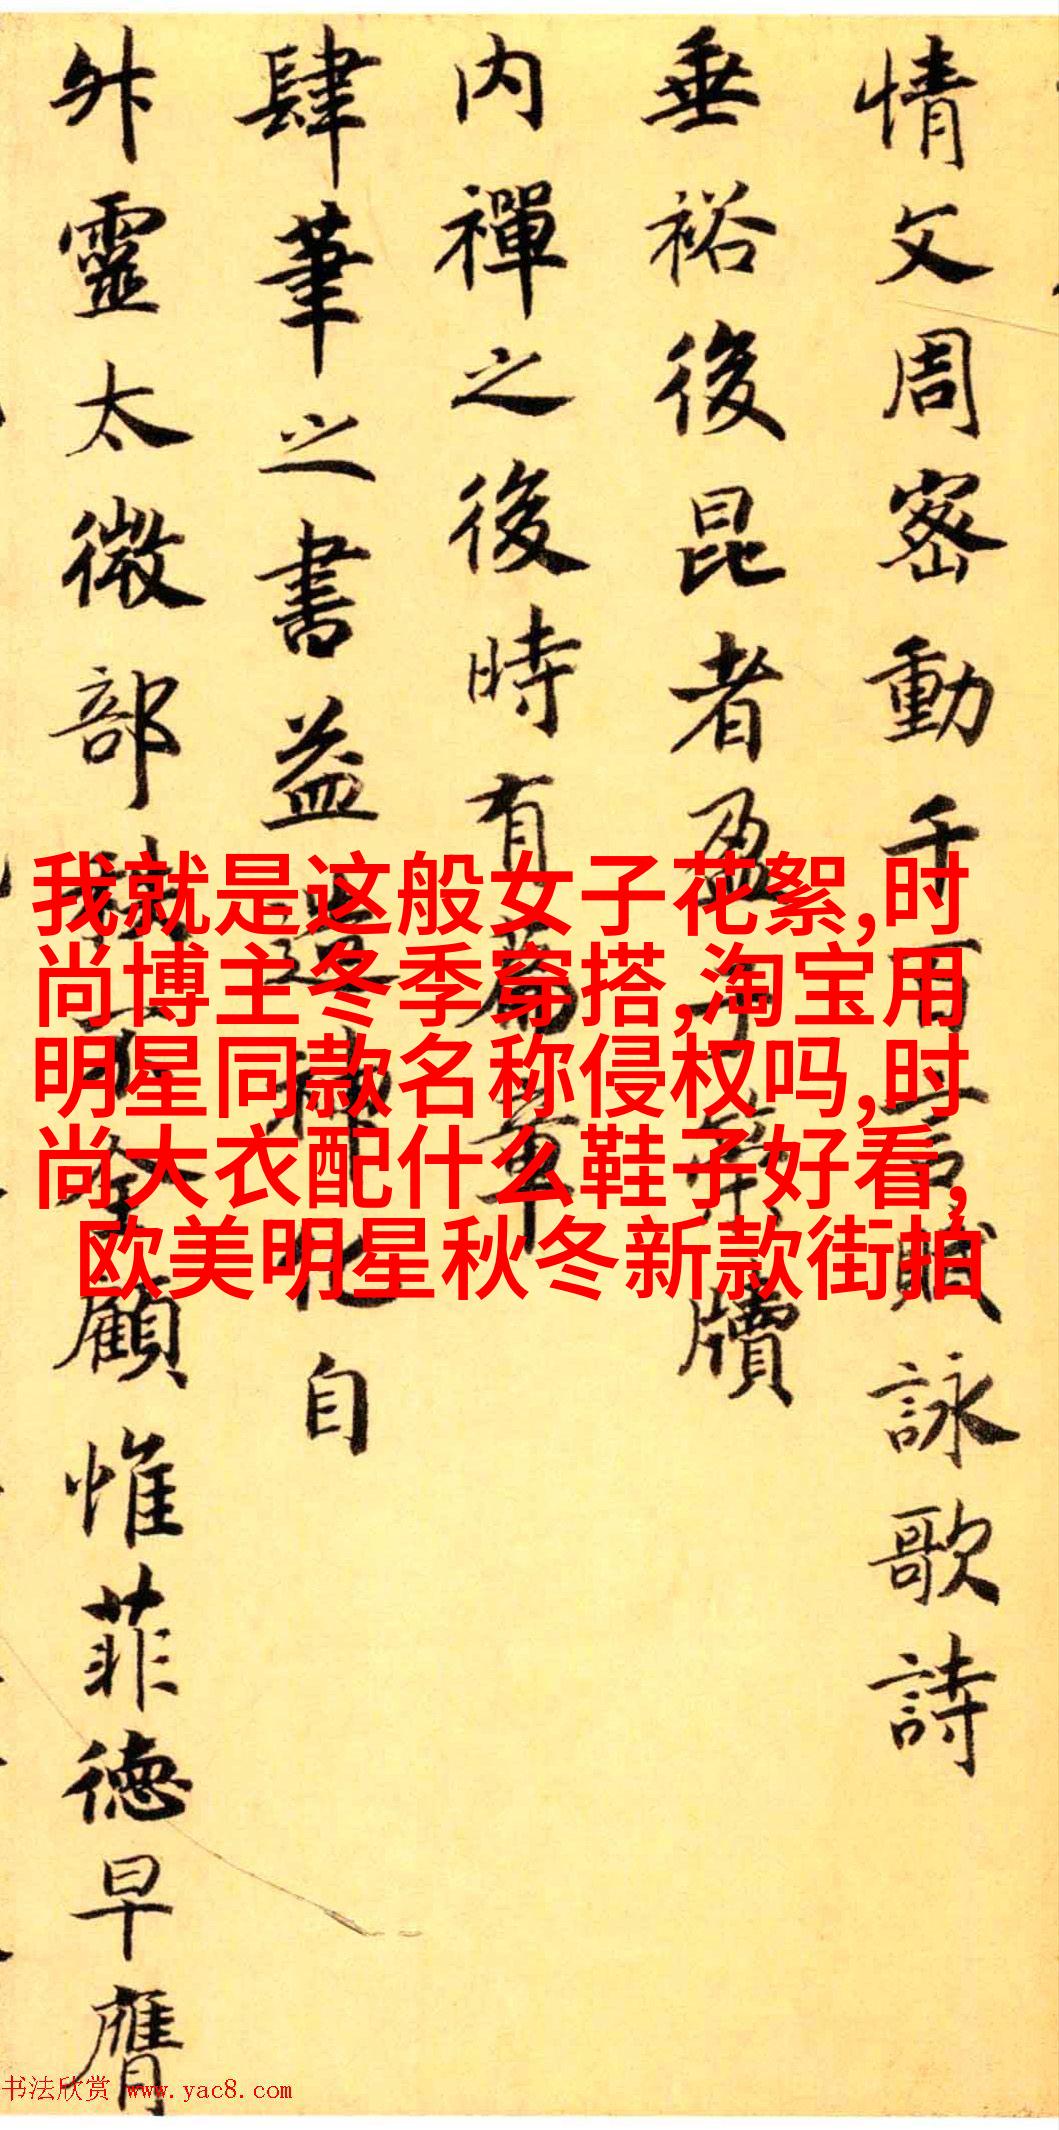 情文周密動千百言賦詠歌詩
垂裕後昆者盈于牘
内禪之後時有篇章
肆筆之書益造神化自
升靈太微部不全顧惟菲德早膺
我就是这般女子花絮,时
尚博主冬季穿搭,淘宝用
明星同款名称侵权吗,时
尚大衣配什么鞋子好看,
欧美明星秋冬新款街拍
书法欣赏 www.yac8.com